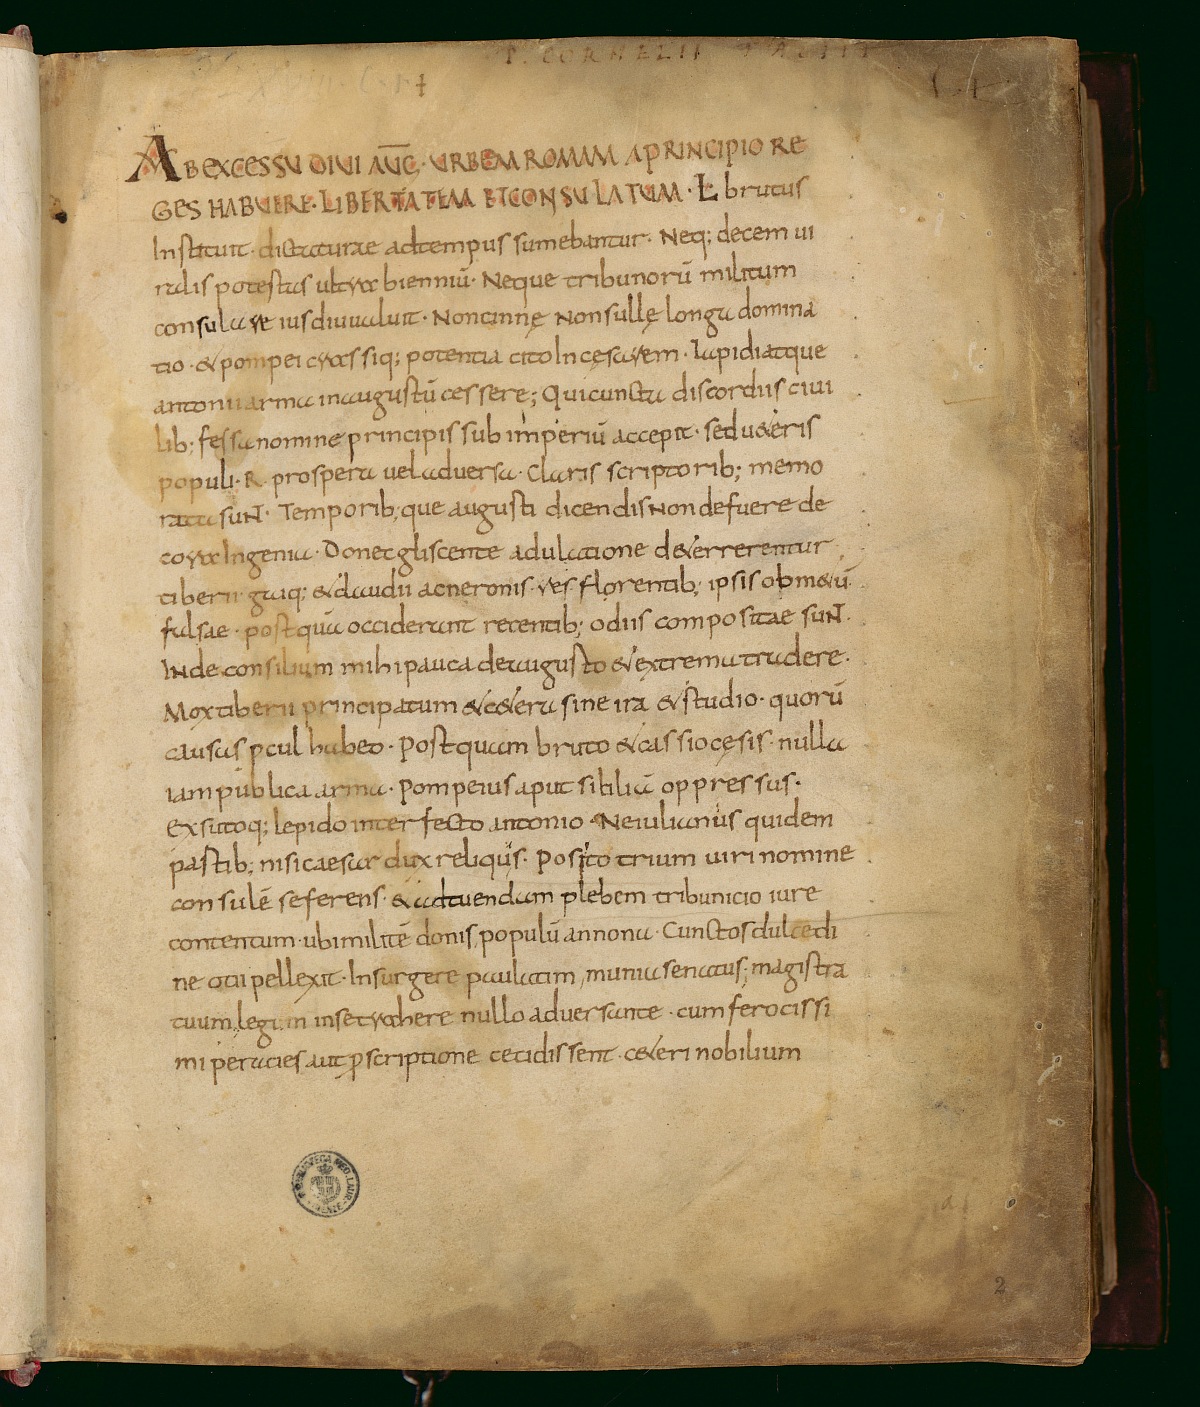 P. CORNELII TACITI
AB EXCESSU DIVI AUG. URBEM ROMAM A PRINCIPIO RE
GES HABUERE. LIBERTATEM ET CONSULATUM. L brutus
Instituit. dictaturae ad tempus sumebantur. Neq; decem ui
ralis potestas ultra bienniū. Neque tribunorū militum
consulare ius diu ualuit. Non cinnę Non sullę longa domina
tio. & pompei crassiq; potentia cito In cęsarem. Lapidi atque
antonii arma in augustū cessere; Qui cuncta discordiis ciui
lib; fessa nomine principis sub imperiū accepit. sed u&eris
populi. R. prospera uel aduersa. Claris scriptorib; memo
rata suNt. Temporib; que augusti dicendis Non defuere de
cora Ingenia. Donec gliscente adulatione d&errerentur
tiberii gaiq; & claudii ac neronis. res florentib; ipsis ob m&ū.
falsae. postquā occiderant recentib; odiis compositae suNt.
INde consilium mihi pauca de augusto & extrema tradere.
Mox tiberii principatum & c&era sine ira & studio. quorū
causas pcul habeo. Postquam bruto & cassio cęsis. nulla
iam publica arma. Pompeius aput siciliā oppressus.
Exsutoq; lepido interfecto antonio. Ne iulianus quidem
pastib; nisi caesar dux reliquus. Posito trium uiri nomine
consulē se ferens. & ad tuendam plebem tribunicio iure
contentum. ubi militē donis, populū annona. Cunctos dulcedi
ne otii pellexit. Insurgere paulatim, munia senatus; magistra
tuum, legum in se trahere nullo aduersante. cum ferocissi
mi per acies aut pscriptione cecidissent. c&eri nobilium
2